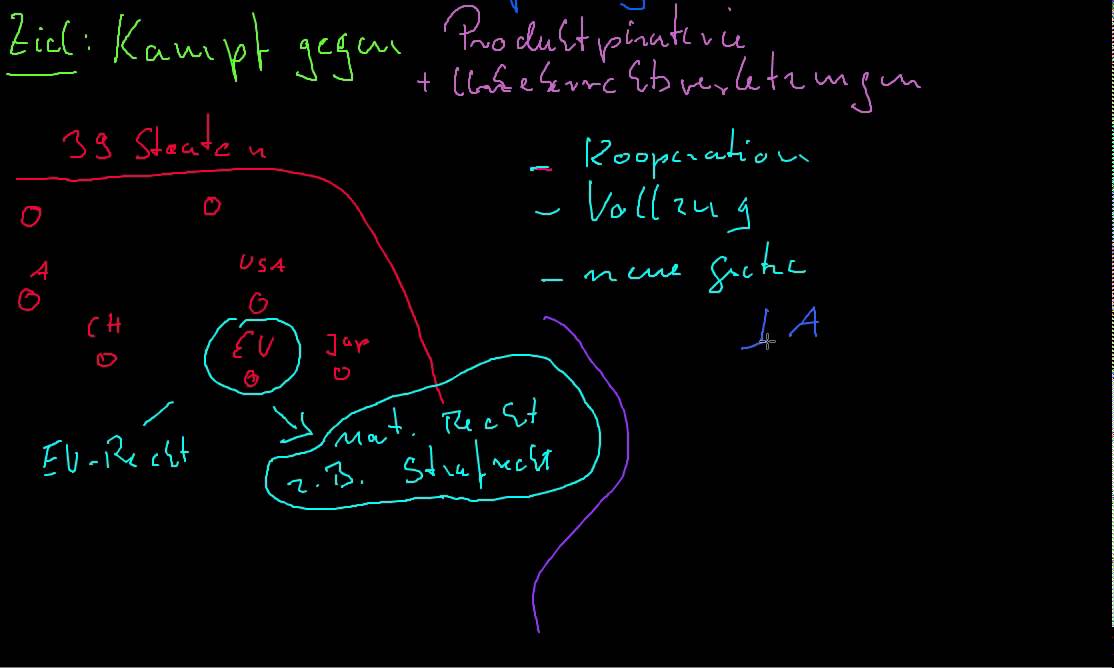 Ziel: Kampf gegen Produktpiraterie
+ Urheberrechtsverletzungen
39 Staaten
- Kooperation
- Vollzug
- neue
A
USA
CH
EU
Jap
A
EU-Recht
mat. Recht
z.B. Strafrecht